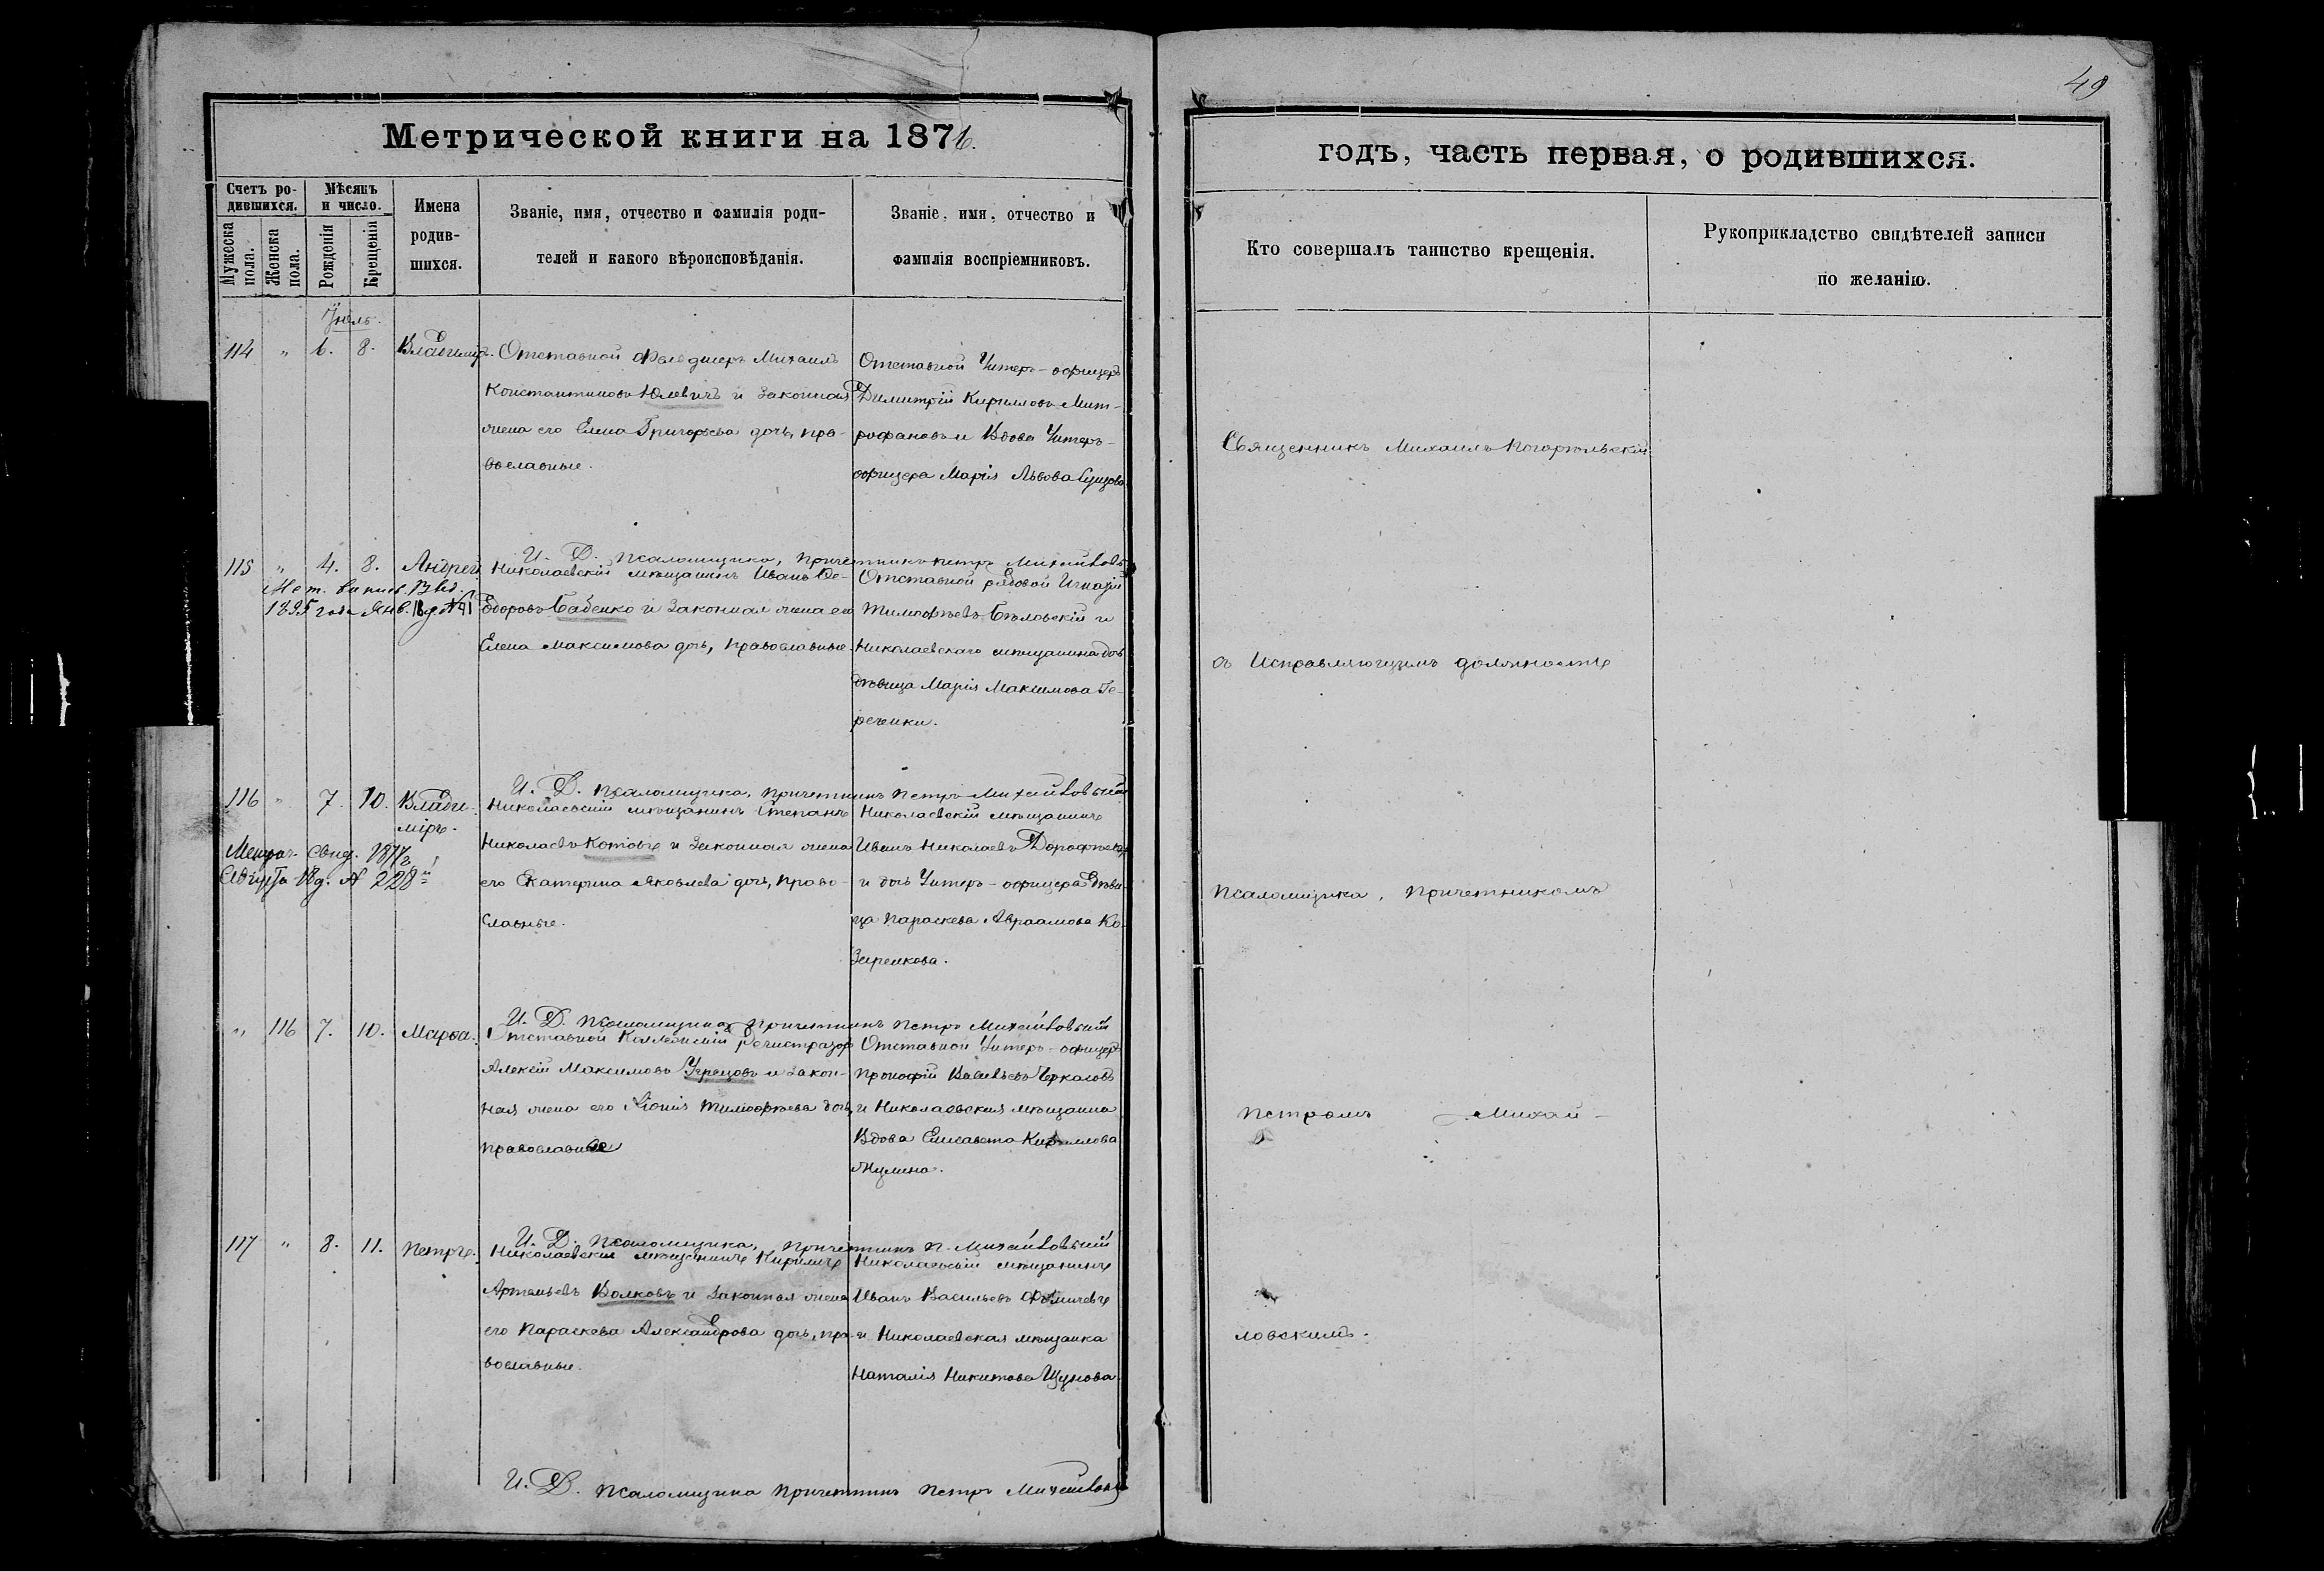 49
Метрической книги на 1876.
годъ, часть первая, о родившихся.
Счетъ родившихся.
Мужеска пола.
Женска пола.
Мѣсяцъ и число.
Рожденія
Крещенія
Имена родившихся.
Званіе, имя, отчество и фамилія родителей и какого вѣроисповѣданія.
Званіе, имя, отчество и фамилія воспріемниковъ.
Кто совершалъ таинство крещенія.
Рукоприкладство свидѣтелей записи по желанію.
Іюль.
114 " 6. 8. Владиміръ.
Отставной Фельдшеръ Михаилъ
Константиновъ Юлевичъ и законная
жена его Елена Григорьева дочь, пра-
вославные.
Отставной Унтеръ-офицеръ
Димитрій Кирилловъ Мит-
рофановъ и Вдова Унтеръ-
офицера Марія Львова
И. Д. псаломщика, причетникъ петръ Михайловскій
115 " 4. 8. Андрей.
Мет. выпись. выд.
1895 года Янв. 18 д. № 91
Николаевскій мѣщанинъ Иванъ Ѳе-
доровъ Бабенко и законная жена его
Елена Максимова дочь, православные.
Отставной рядовой Игнатій
Тимофѣевъ Бѣловскій и
Николаевскаго мѣщанина дочь
дѣвица Марія Максимова Ге-
реченки.
И. Д. псаломщика, причетникъ петръ Михайловскій
116 " 7. 10. Влади-
міръ.
Метрич. свид. 1877 г.
Августа 18 д. № 228й
Николаевскій мѣщанинъ Степанъ
Николаевъ Котовъ и законная жена
его Екатерина Яковлева дочь, право-
славные.
Николаевскій мѣщанинъ
Иванъ Николаевъ Дорофѣевъ
и дочь Унтеръ-офицера дѣви-
ца Параскева Авраамова Ко-
зыренкова.
И. Д. псаломщика причетникъ петръ Михайловскій
" 116 7. 10. Марѳа.
Отставной Коллежскій Регистраторъ
Алексій Максимовъ Угрецовъ и закон-
ная жена его Ксенія Тимофѣева дочь,
православные
Отставной Унтеръ-офицеръ
Прокофій Васильевъ Черкасовъ
и Николаевская мѣщанка
Вдова Елисавета Кириллова
Жулина.
И. Д. псаломщика, причетникъ П. Михайловскій
117 " 8. 11. Петръ.
Николаевскій мѣщанинъ Кирилъ
Артемьевъ Волковъ и законная жена
его Параскева Александрова дочь, пра-
вославные.
Николаевскій мѣщанинъ
Иванъ Васильевъ Ѳоминевъ
и Николаевская мѣщанка
Наталія Никитова Щукова
И. Д. псаломщика причетникъ петръ Михайловскій
Священникъ Михаилъ Погорѣльскій
съ Исправляющимъ должность
псаломщика, причетникомъ
петромъ Михай-
ловскимъ.